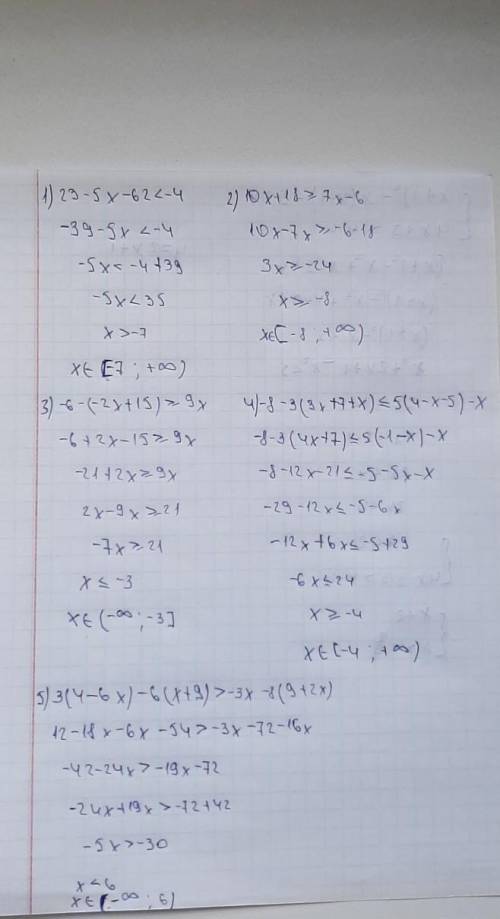 1) 23-5x-62<-4
-39-5x<-4
-5x<-4+39
-5x<35
x>-7
x∈[-7; +∞)
2) 10x+18≥7x-6
10x-7x≥-6-18
3x≥-24
x≥-8
x∈[-8; +∞)
3) -6-(-2x+15)≥9x
-6+2x-15≥9x
-21+2x≥9x
2x-9x≥21
-7x≥21
x≤-3
x∈(-∞; -3]
4) -8-3(3x+7+x)≤5(4-x-5)-x
-8-3(4x+7)≤5(-1-x)-x
-8-12x-21≤-5-5x-x
-29-12x≤-5-6x
-12x+6x≤-5+29
-6x≤24
x≥-4
x∈[-4; +∞)
5) 3(4-6x)-6(x+9)>-3x-8(9+2x)
12-18x-6x-54>-3x-72-16x
-42-24x>-19x-72
-24x+19x>-72+42
-5x>-30
x<6
x∈(-∞; 6)